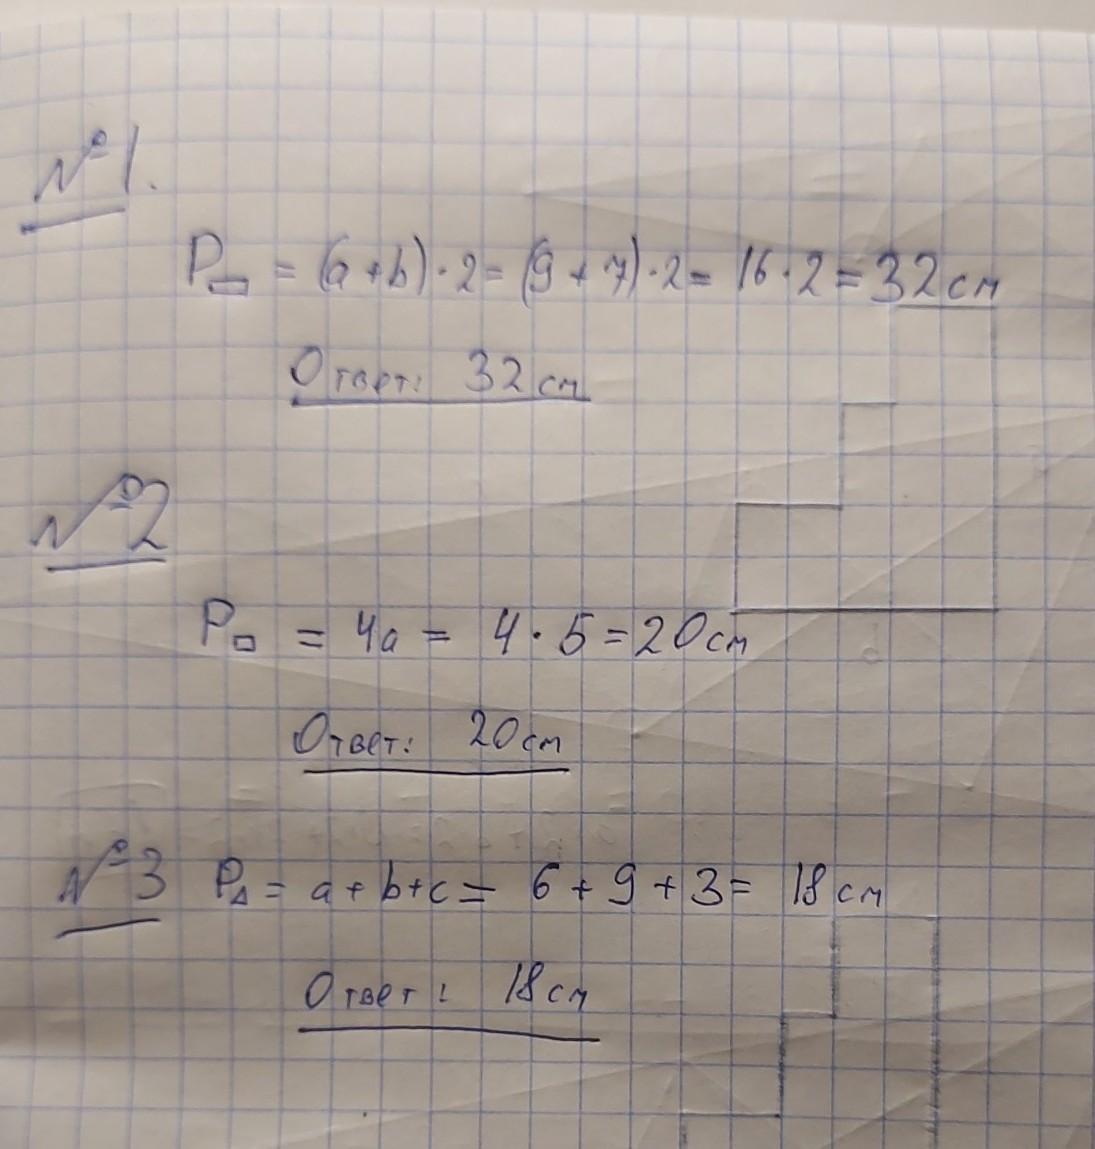 №1.
P▭ = (a+b)·2 = (9+7)·2 = 16·2 = 32 см
Ответ: 32 см
№2
P□ = 4a = 4·5 = 20 см
Ответ: 20 см
№3 P△ = a+b+c = 6+9+3 = 18 см
Ответ: 18 см